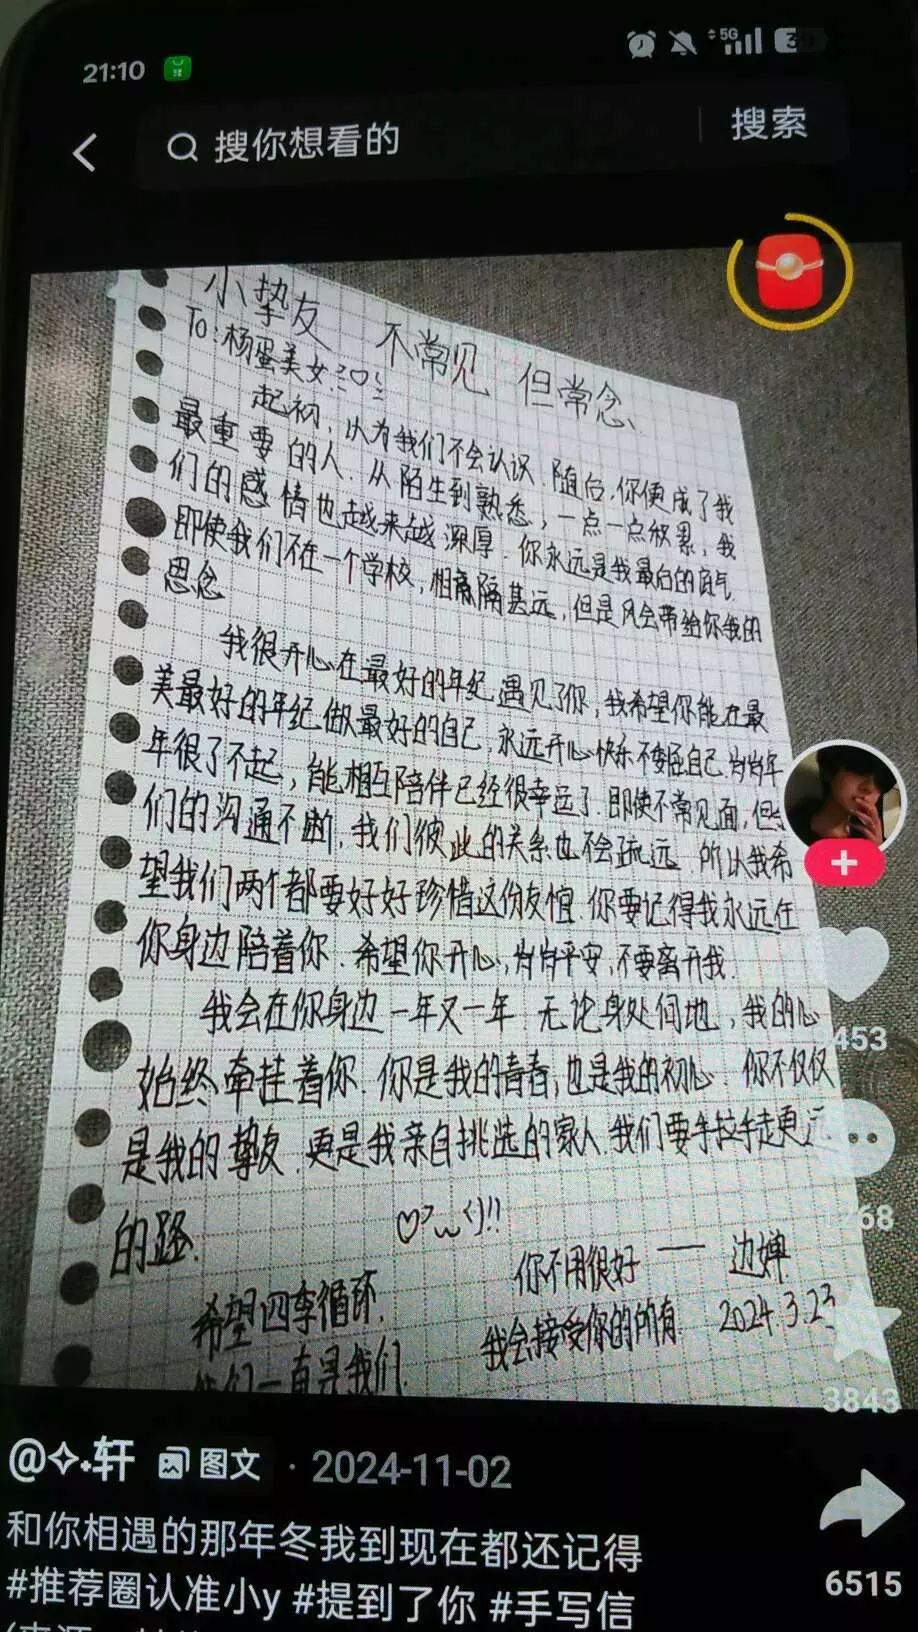 21:10
5G
搜你想看的
搜索
小挚友 不常见 但常念
To:杨蛋美女
起初,以为我们不会认识.随后,你便成了我
最重要的人.从陌生到熟悉,一点一点积累,我
们的感情也越来越深厚.你永远是我最白的底气
即使我们不在一个学校,相离隔甚远,但是风会带给你我的
思念
我很开心在最好的年纪遇见了你,我希望你能在最
美最好的年纪做最好的自己,永远开心快乐不委屈自己,岁岁年
年很了不起,能相互陪伴已经很幸运了.即使不常见面,但
们的沟通不断,我们彼此的关系也不会疏远.所以我希
望我们两个都要好好珍惜这份友谊.你要记得我永远在
你身边陪着你.希望你开心,岁岁平安,不要离开我.
我会在你身边一年又一年.无论身处何地,我的心
始终牵挂着你.你是我的青春,也是我的初心.你不仅仅
是我的挚友.更是我亲自挑选的家人.我们要手拉手走更远
的路.
你不用很好 —— 边婵
希望四季循环,
我会接受你的所有. 2024.3.23
我们一直是我们
453
268
3843
@✧˖轩 图文 · 2024-11-02
和你相遇的那年冬我到现在都还记得
#推荐圈认准小y #提到了你 #手写信
6515